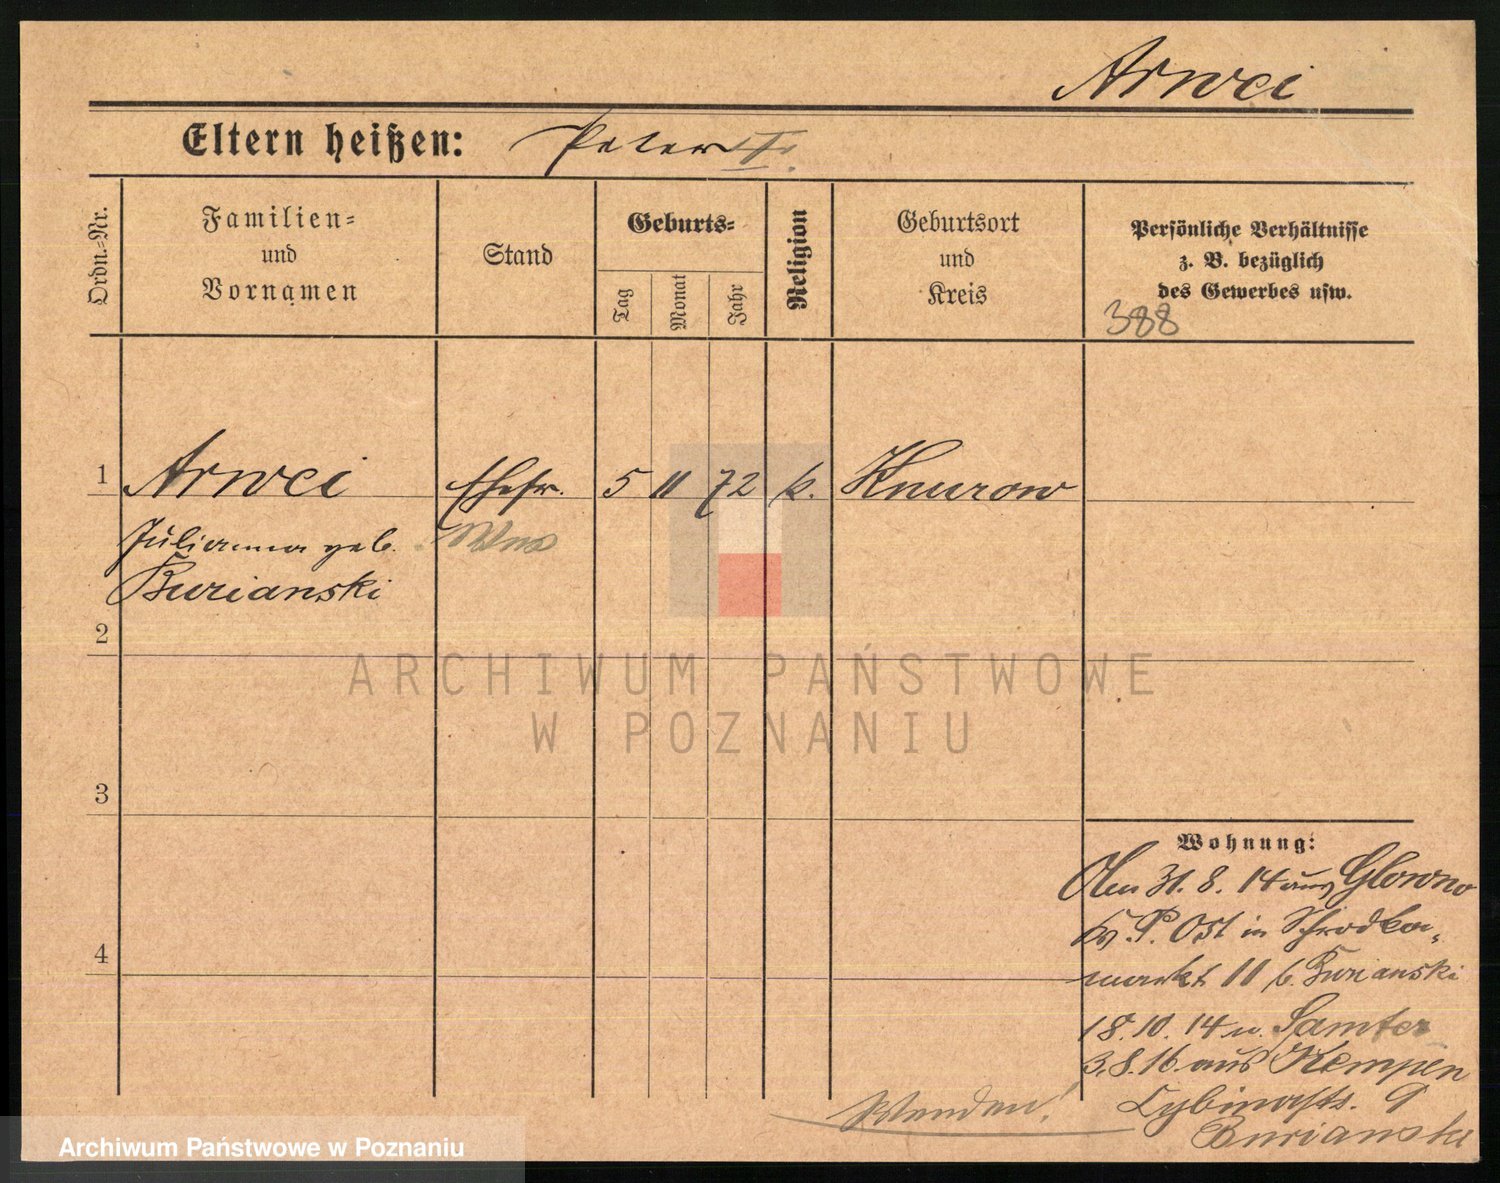 Arwei
Eltern heißen: Peter II.
Ordn.=Nr.
Familien=
und
Vornamen
Stand
Geburts=
Tag
Monat
Jahr
Religion
Geburtsort
und
Kreis
Persönliche Verhältnisse
z. B. bezüglich
des Gewerbes usw.
388
1 Arwei Ehefr. 5 11 72 k. Knurow
Julianna geb.
Burianski
2
3
4
ARCHIWUM PAŃSTWOWE
W POZNANIU
Wohnung:
Am 31. 8. 14 aus Glowno
Kr. P. Ost in Schrodka-
markt 11 b. Burianski
18. 10. 14 n. Samter
3. 8. 16. aus Kempen
Cybinastr. 9
Burianski
Wenden!
Archiwum Państwowe w Poznaniu